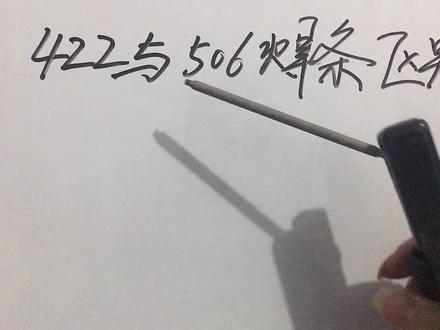 422与506焊条区别